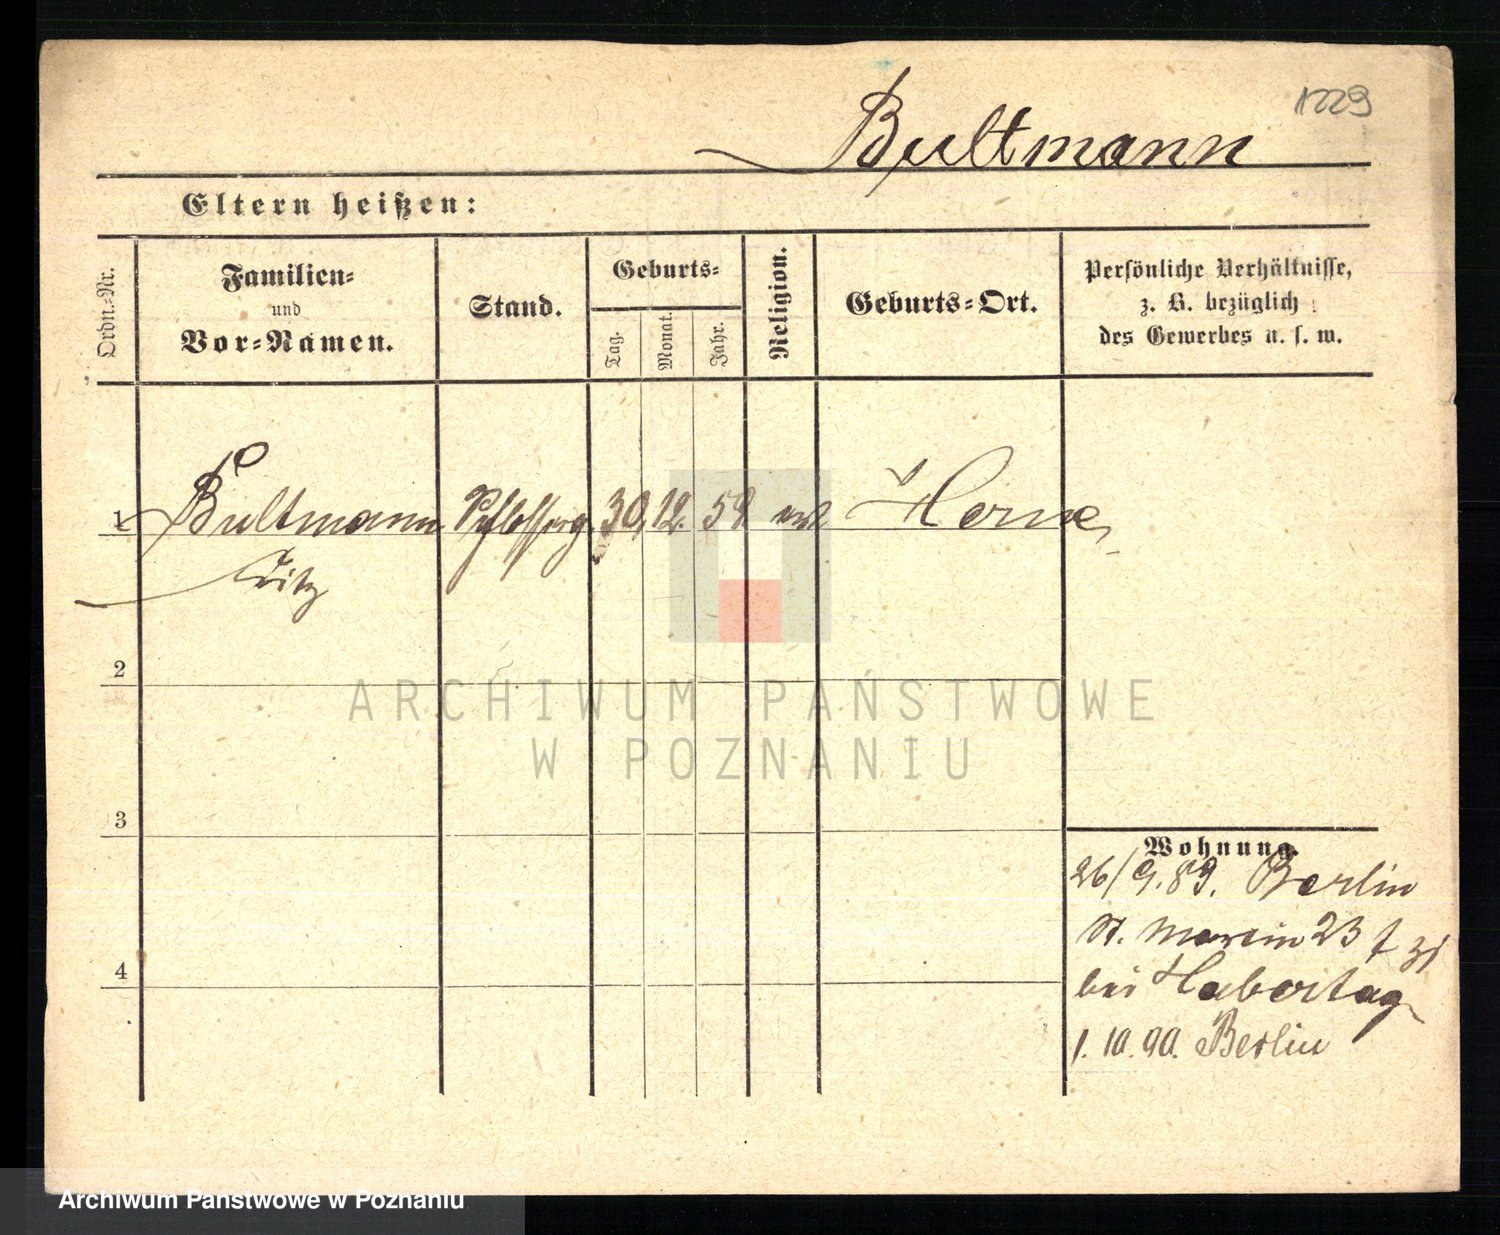 1229
Bultmann
Eltern heißen:
Ordn.-Nr.
Familien-
und
Vor-Namen.
Stand.
Geburts-
Tag.
Monat.
Jahr.
Religion.
Geburts-Ort.
Persönliche Verhältnisse,
z. B. bezüglich
des Gewerbes u. s. w.
1 Bultmann 30. 12. 58
Fritz
2
ARCHIWUM PAŃSTWOWE
W POZNANIU
3
Wohnung.
26/9.89. Berlin
St. Martin 23
4
bei
1.10.90. Berlin
Archiwum Państwowe w Poznaniu